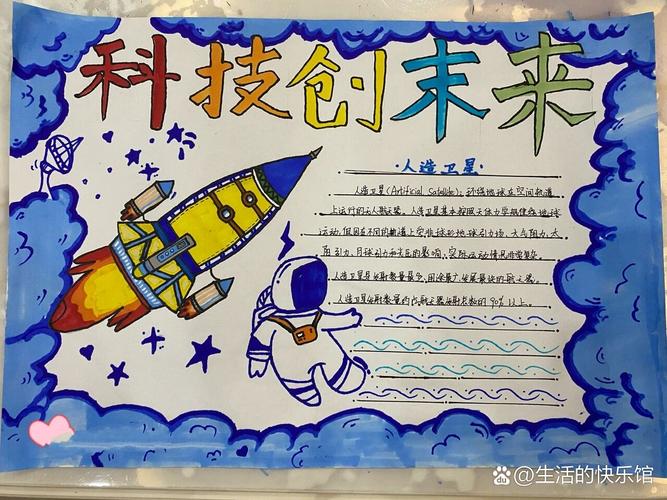 科技创末来
·人造卫星·
人造卫星(Artificial Satellite):环绕地球在空间轨道
上运行的无人航天器。人造卫星基本按照天体力学规律绕地球
运动,但因在不同的轨道上受非球形地球引力场、大气阻力、太
阳引力、月球引力和光压的影响,实际运动情况非常复杂。
人造卫星是发射数量最多,用途最广,发展最快的航天器。
人造卫星发射数量约占航天器发射总数的90%以上。
Baidu @生活的快乐馆